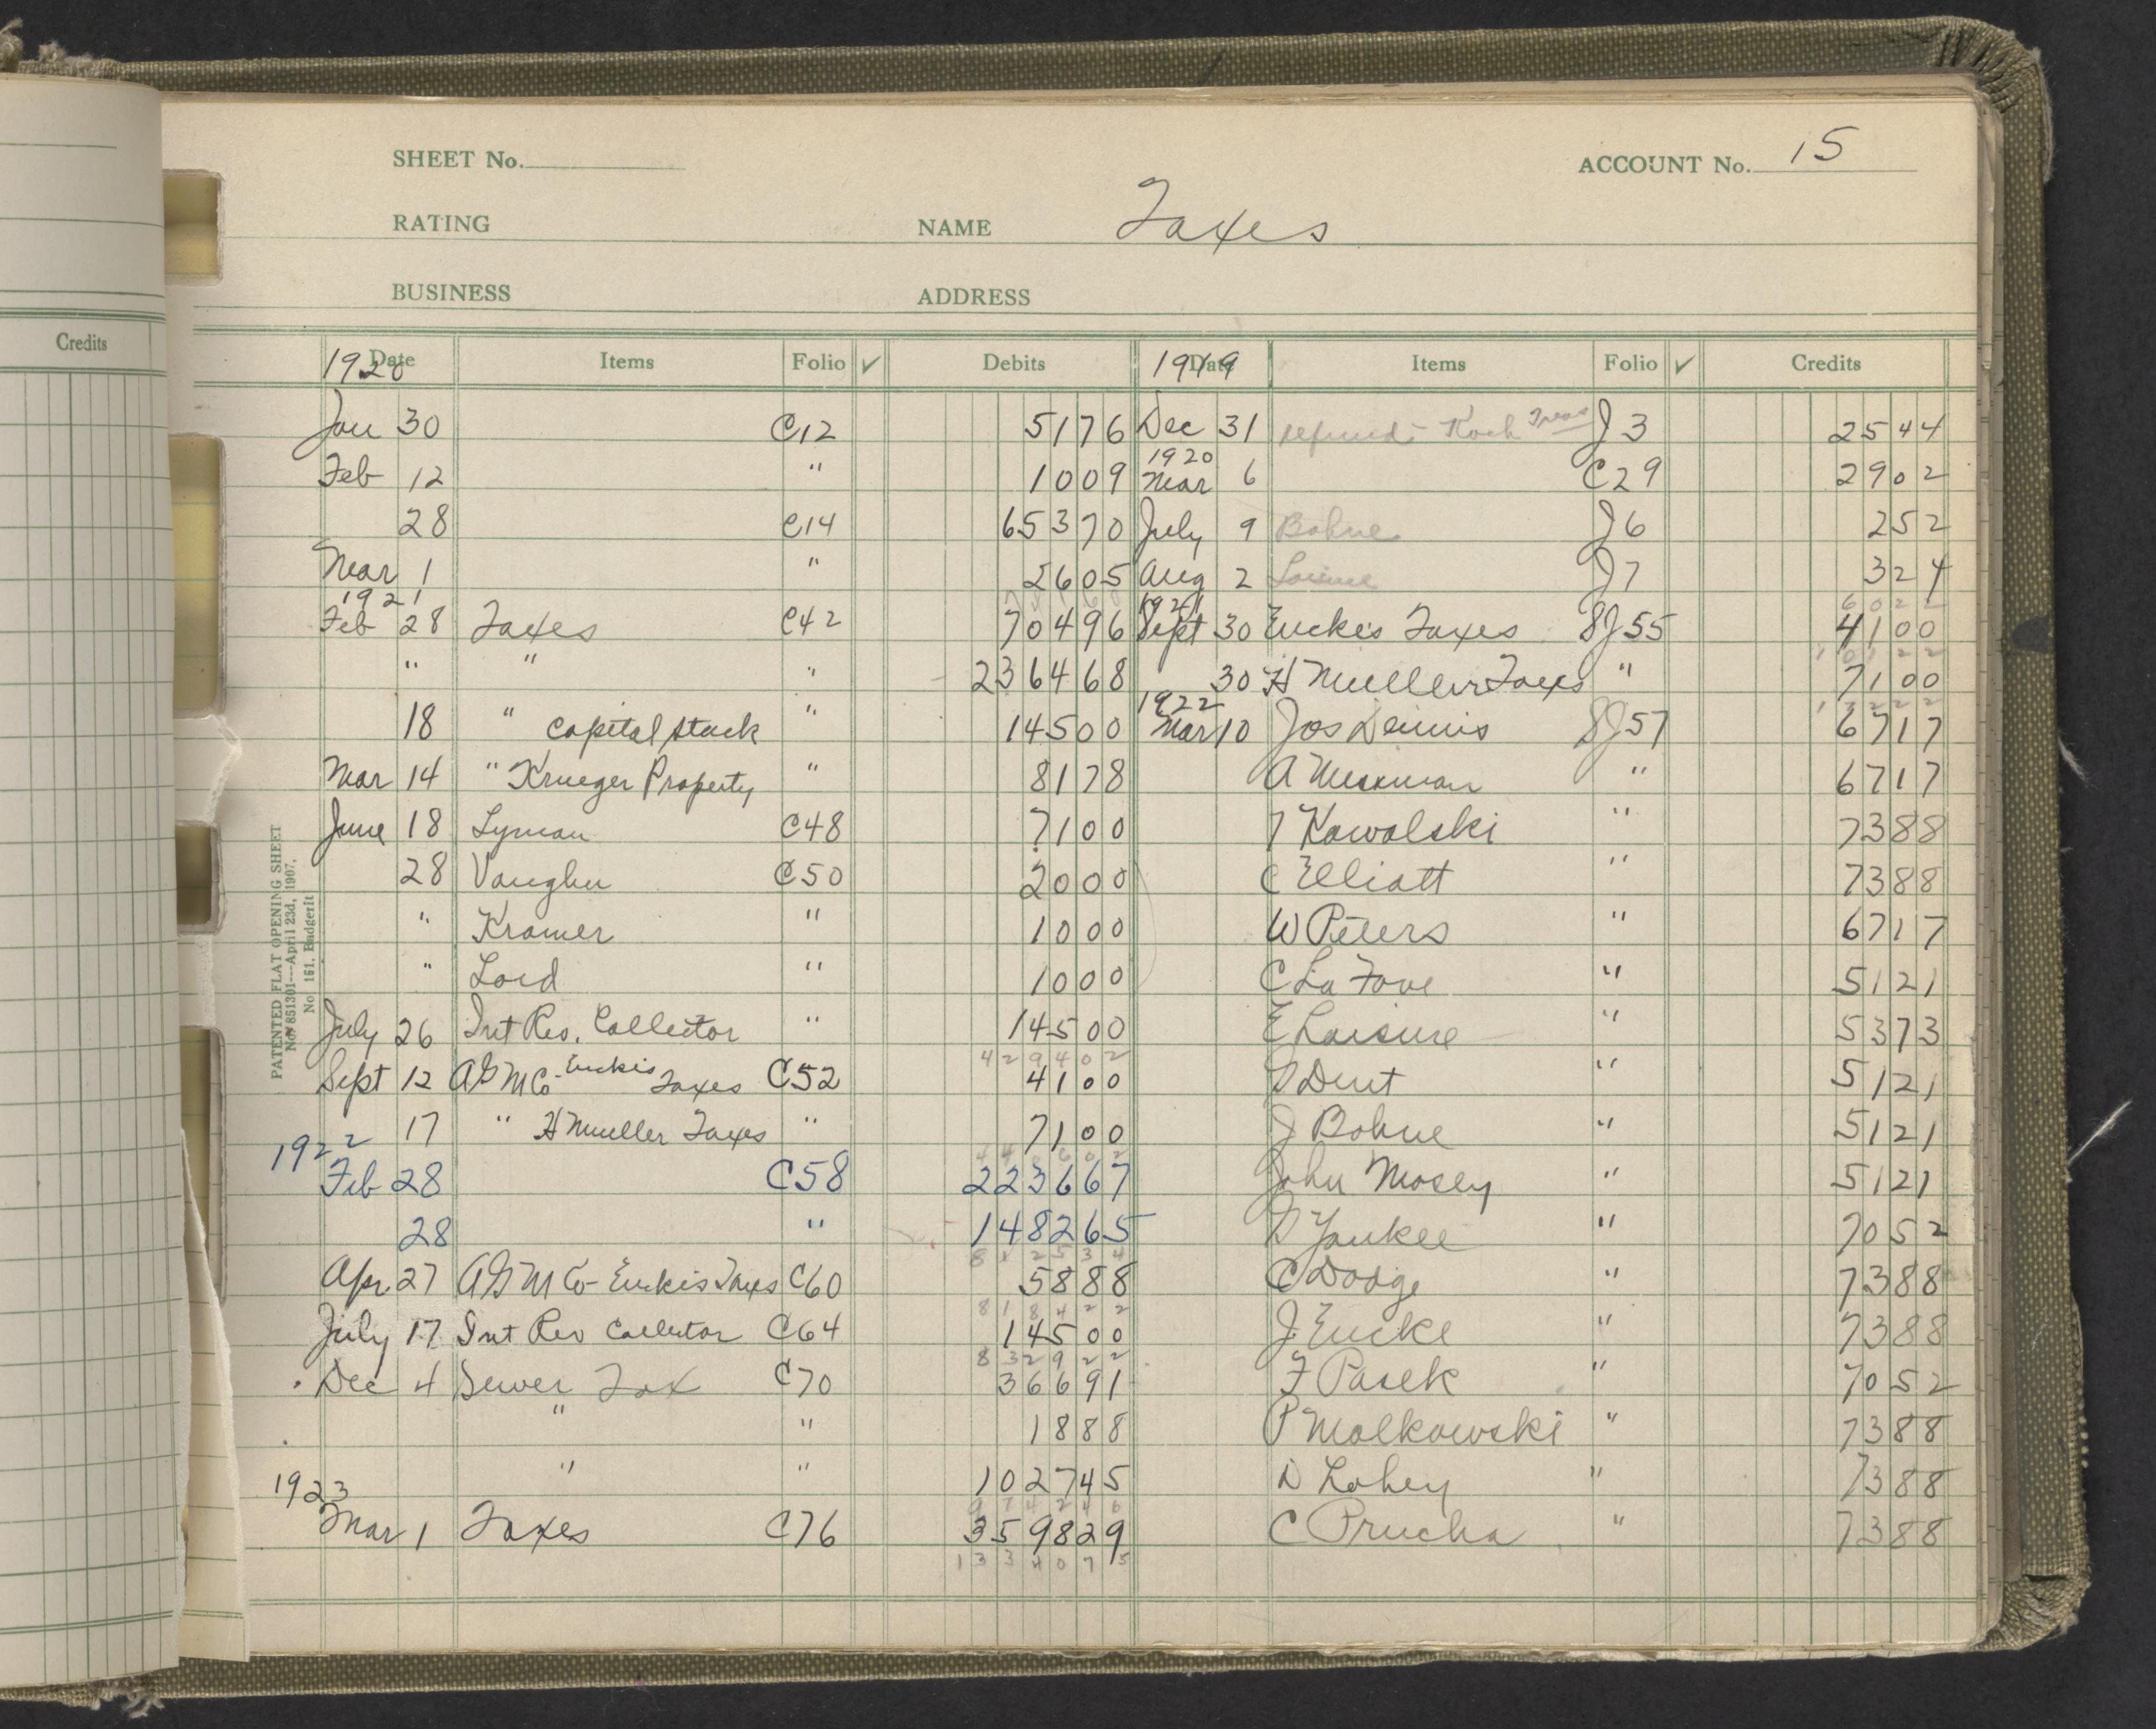 Credits
SHEET No.
ACCOUNT No. 15
RATING
NAME Taxes
BUSINESS
ADDRESS
Date Items Folio ✓ Debits Date Items Folio ✓ Credits
1920 1919
Jan 30 C12 5176 Dec 31 refund Koch Treas J3 2544
1920
Feb 12 " 1009 Mar 6 C29 2902
28 C14 65370 July 9 Bohne J6 252
Mar 1 " 2605 Aug 2 Loisure J7 324
1921 1921 6022
Feb 28 Taxes C42 70496 Sept 30 Euckes Taxes SJ55 4100
10122
" " " 236468 30 H Mueller Taxes " 7100
1922 17222
18 " Capital Stock " 14500 Mar 10 Jos Dennis SJ57 6717
Mar 14 " Krueger Property " 8178 A 6717
June 18 Lyman C48 7100 Kowalski " 7388
28 Vaughn C50 2000 C Elliott " 7388
" Kramer " 1000 W Peters " 6717
" Lord " 1000 C La Fave " 5121
July 26 Int Rev. Collector " 14500 E Loisure " 5373
429402
Sept 12 AGMCo Euckis Taxes C52 4100 Dent " 5121
17 " H Mueller Taxes " 7100 J Bohne " 5121
1922
Feb 28 C58 223667 John Mosey " 5121
28 " 148265 Yankee " 7052
812534
Apr 27 AGM Co- Euckis Taxes C60 5888 C Dodge " 7388
818422
July 17 Int Rev Collector C64 14500 J. Eucke " 7388
832922
Dec 4 Sewer Tax C70 36691 F Pasek " 7052
" " 1888 P Malkowski " 7388
" " 102745 D Lohey " 7388
1923 974246
Mar 1 Taxes C76 359829 C Prucha " 7388
1334075
PATENTED FLAT OPENING SHEET
No. 851301---April 23d, 1907.
No. 161. Badgerit